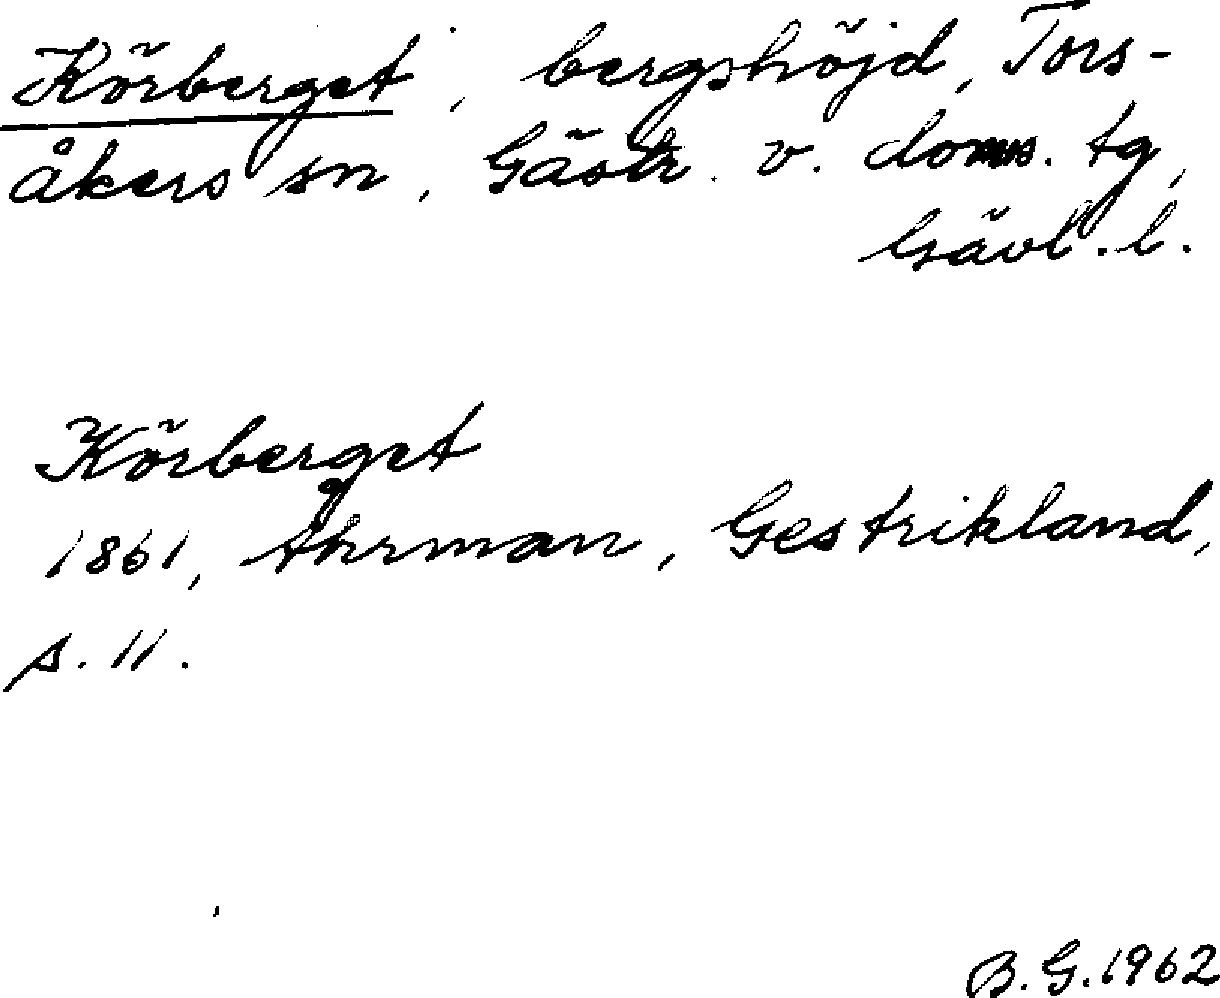 Körberget, bergshöjd, Tors-
åkers sn, Gästr. v. doms. tg,
Gävl. l.
Körberget
1861, Ahrman, Gestrikland,
s. 11.
B. G. 1962